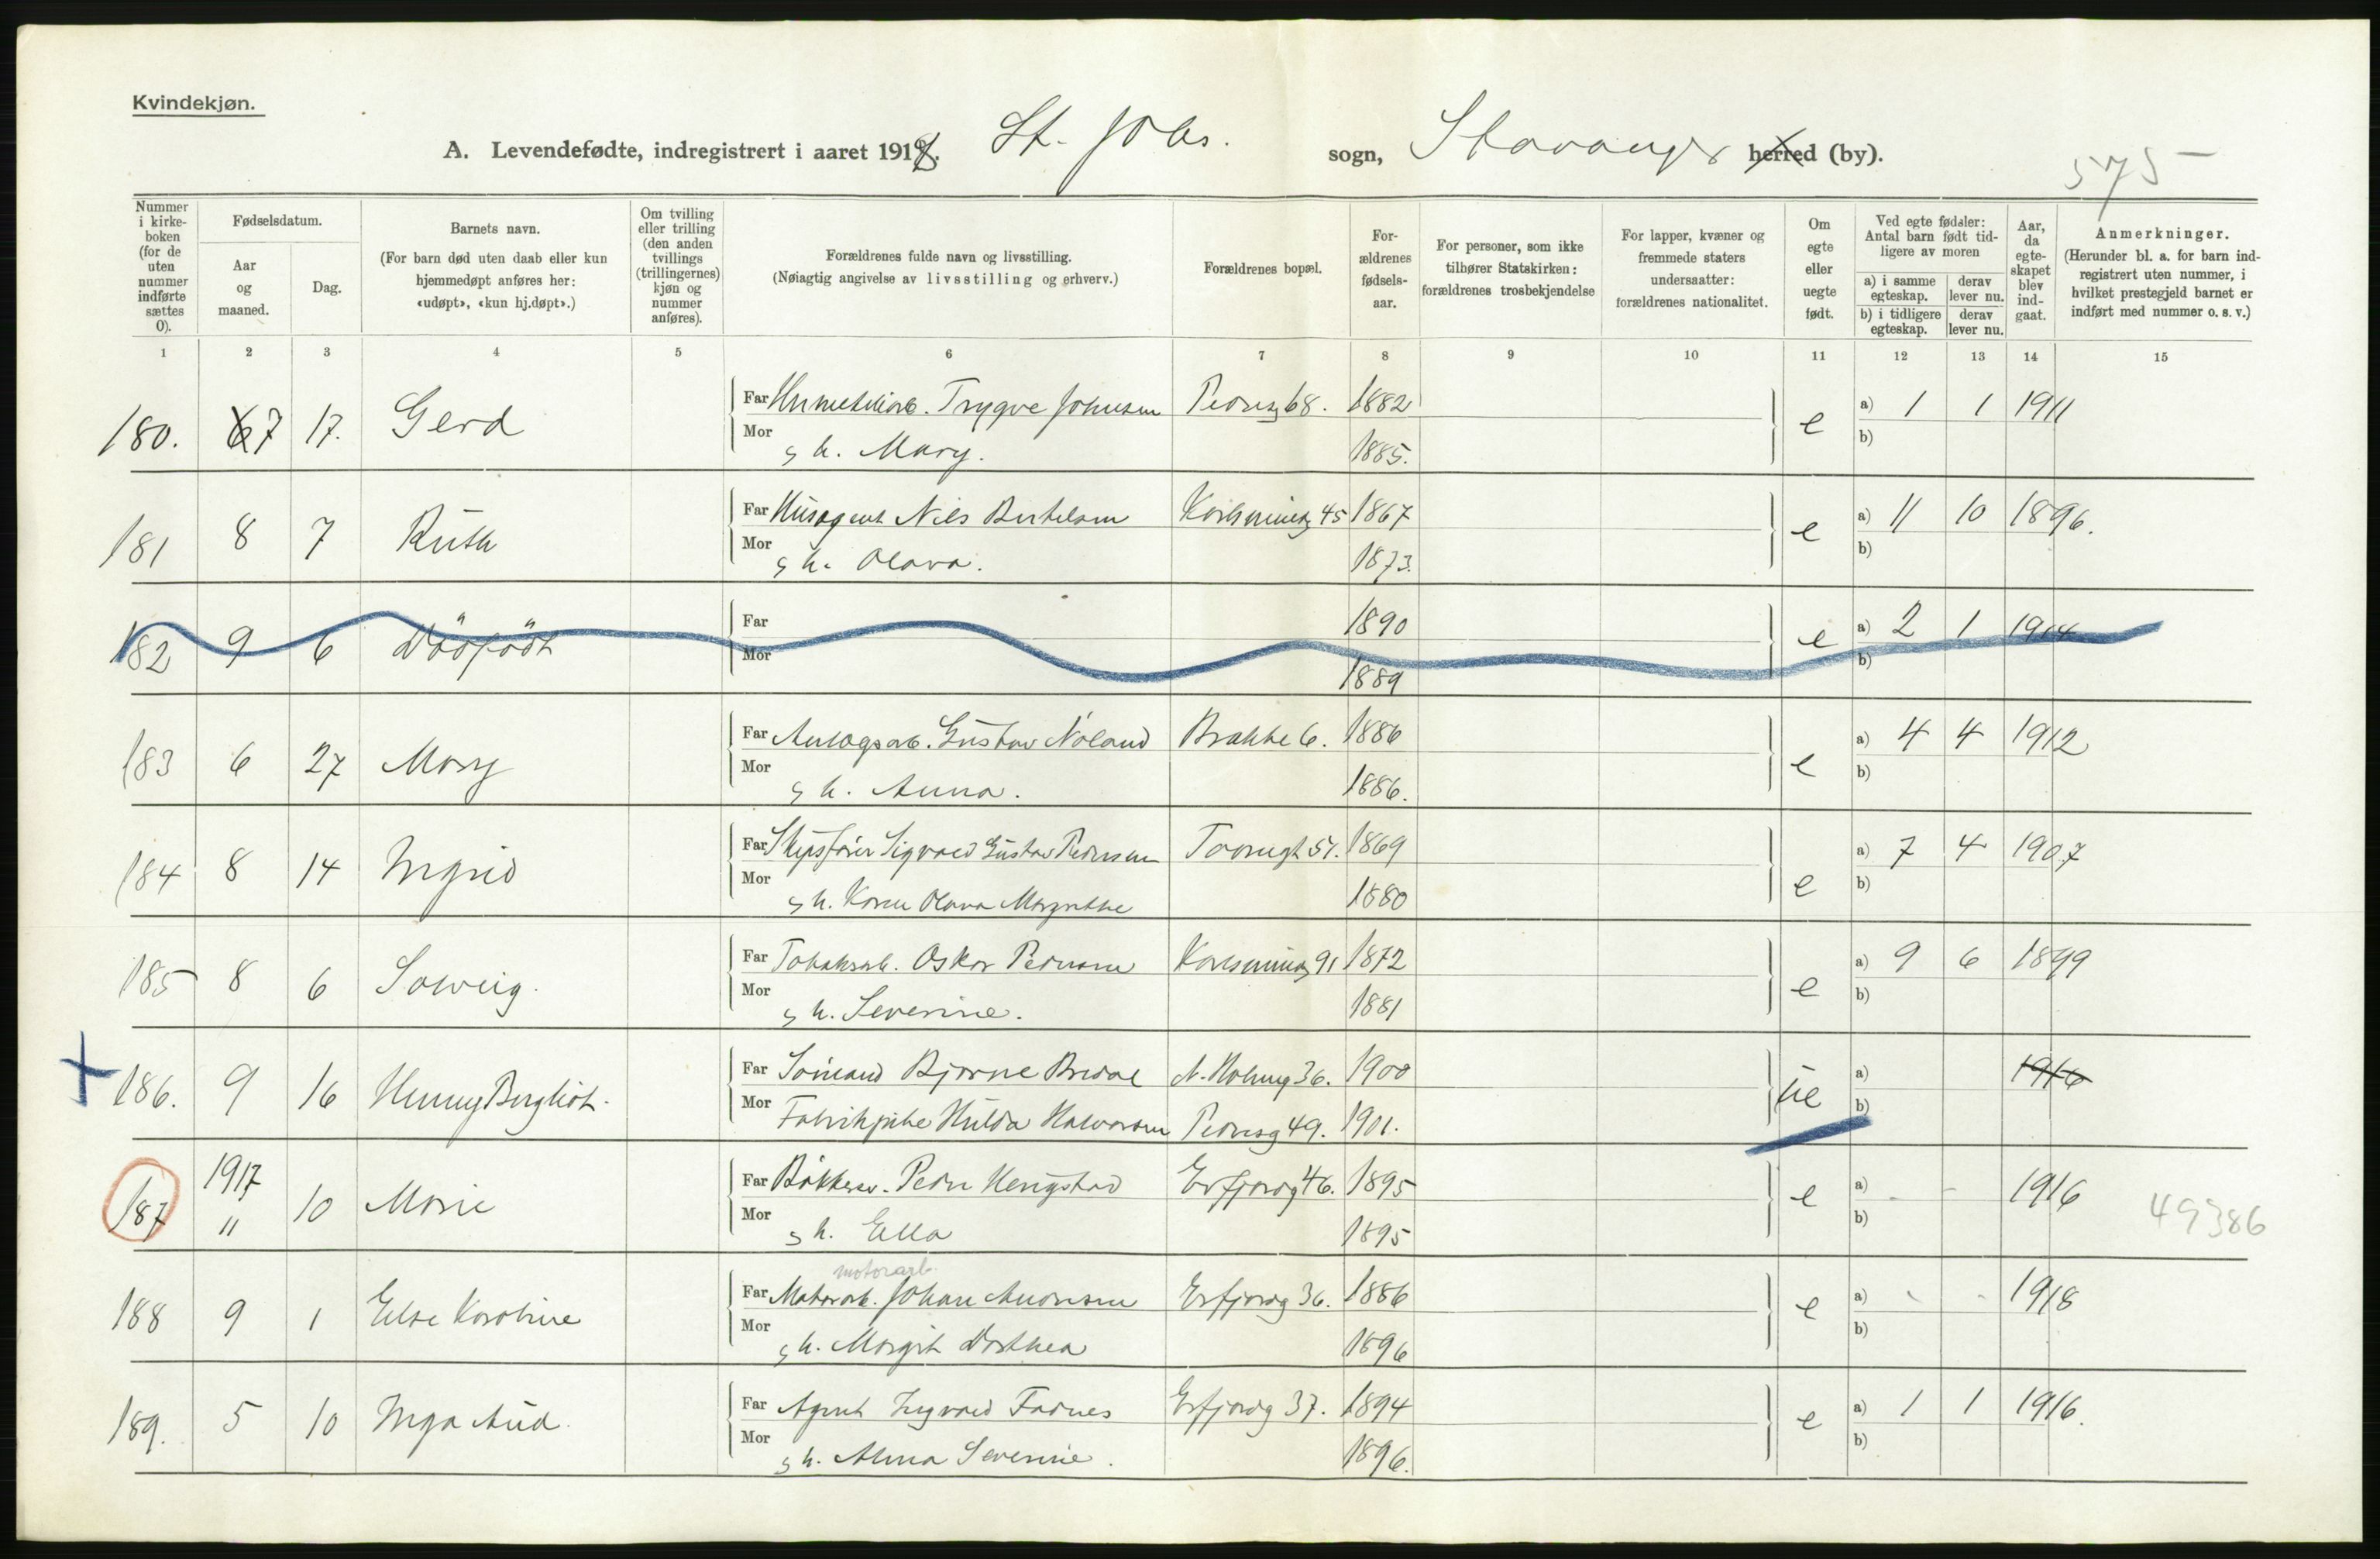 Kvindekjøn.
A. Levendefødte, indregistrert i aaret 1918. St. Johs. sogn, Stavanger herred (by).
575
Nummer i kirke-boken (for de uten nummer indførte sættes 0).
Fødselsdatum.
Aar og maaned.
Dag.
Barnets navn.
(For barn død uten daab eller kun hjemmedøpt anføres her: «udøpt», «kun hj.døpt».)
Om tvilling eller trilling (den anden tvillings (trillingernes) kjøn og nummer anføres).
Forældrenes fulde navn og livsstilling.
(Nøiagtig angivelse av livsstilling og erhverv.)
Forældrenes bopæl.
For-ældrenes fødsels-aar.
For personer, som ikke tilhører Statskirken: forældrenes trosbekjendelse
For lapper, kvæner og fremmede staters undersaatter: forældrenes nationalitet.
Om egte eller uegte født.
Ved egte fødsler: Antal barn født tid-ligere av moren
a) i samme egteskap.
derav lever nu.
b) i tidligere egteskap.
derav lever nu.
Aar, da egte-skapet blev ind-gaat.
Anmerkninger.
(Herunder bl. a. for barn ind-registrert uten nummer, i hvilket prestegjeld barnet er indført med nummer o. s. v.)
1 2 3 4 5 6 7 8 9 10 11 12 13 14 15
180. 6 7 17. Gerd Far Trygve Johnsen Pedersg 68. 1882 e a) 1 1 1911
Mor g h. Mary. 1885. b)
181 8 7 Ruth Far Husagent Nils Bertelsen 45 1867 e a) 11 10 1896.
Mor g h. Olava. 1873. b)
182 9 6 Dödfödt Far 1890 e a) 2 1 1914
Mor 1889 b)
183 6 27 Mary Far Anlægsarb. Gustav Nåland Brakke 6. 1886 e a) 4 4 1912
Mor g h. Anna. 1886. b)
184 8 14 Ingrid Far Skipsfører Sigvald Gustav Pedersen 51. 1869 e a) 7 4 1907
Mor g h. Karen Olava Margrethe 1880 b)
185 8 6 Solveig. Far Tobaksarb. Oskar Pedersen 91 1872 e a) 9 6 1899
Mor g h. Severine. 1881 b)
186. 9 16 Henny Bergliot. Far Sömand Bjarne Bredal N. Holmeg 36. 1900 ue a) 1916
Mor Fabrikpike Hulda Halvorsen Pedersg 49. 1901. b)
187 1917 11 10 Marie Far Pedr Hengstad Erfjordg 46. 1895 e a) - - 1916 49386
Mor g h. Ella 1895 b)
motorarb.
188 9 1 Else Karoline Far Motorarb. Johan Andersen Erfjordg 36. 1886 e a) - - 1918
Mor g h. Margit Dorthea 1896 b)
189. 5 10 Inga Aud. Far Agent Ingvald Fadnes Erfjordg 37. 1894 e a) 1 1 1916.
Mor g h. Alma Severine. 1896. b)